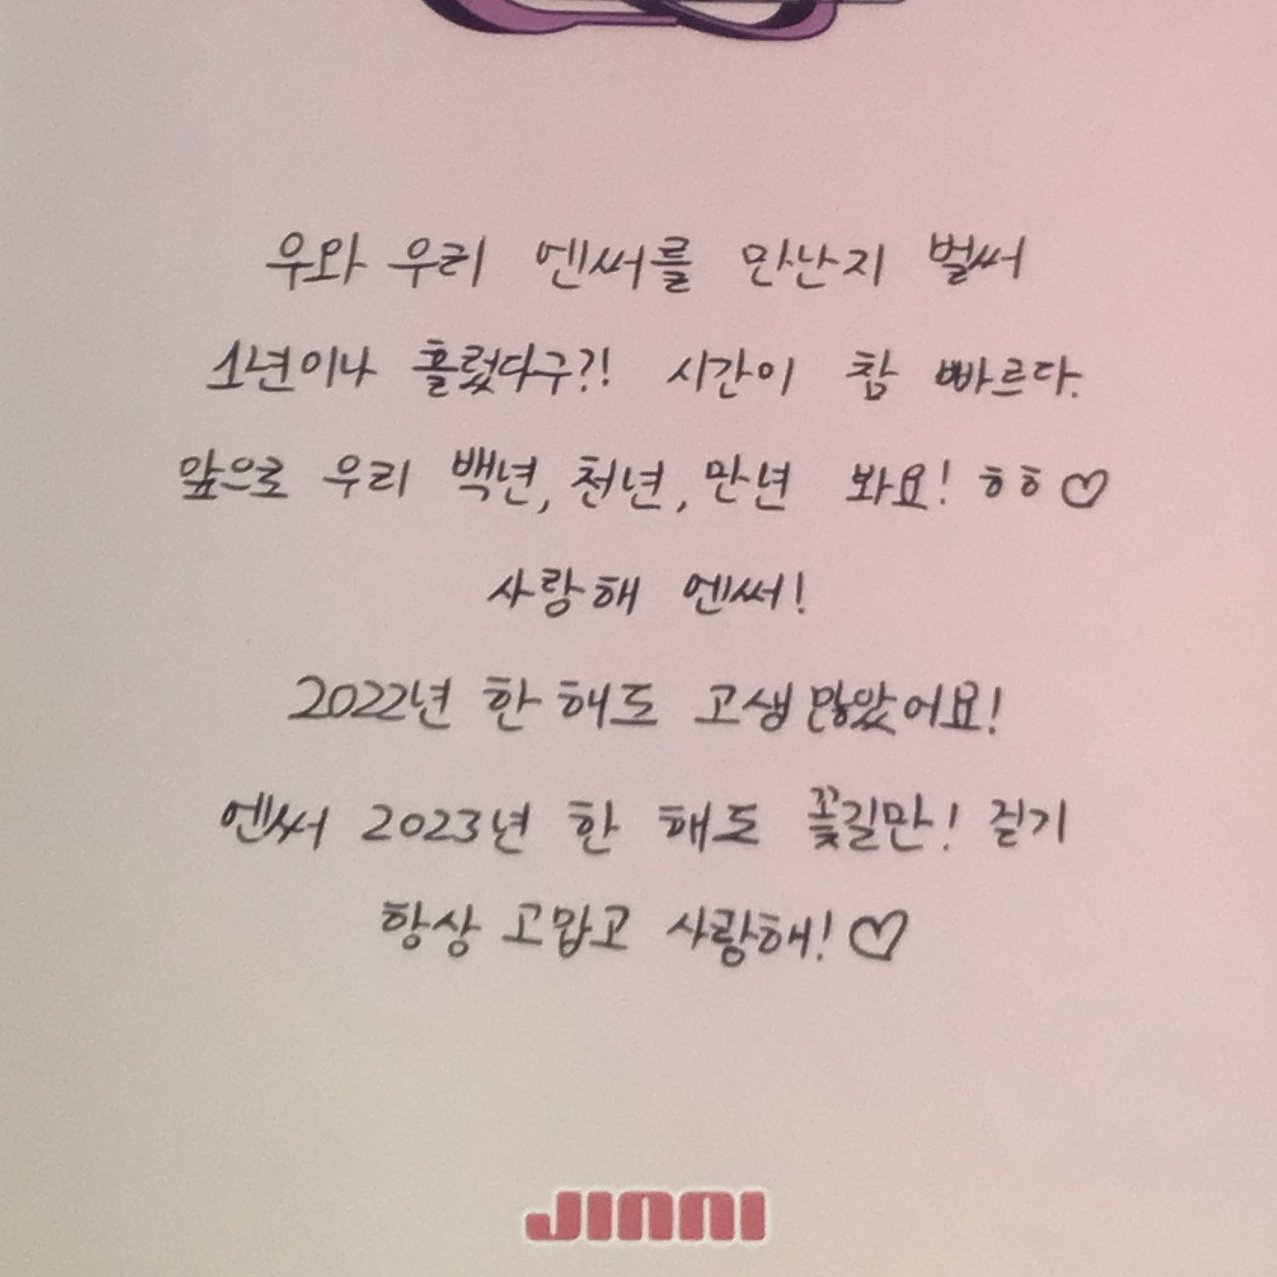 우와 우리 엔써를 만난지 벌써
1년이나 흘렀다구?! 시간이 참 빠르다.
앞으로 우리 백년, 천년, 만년 봐요! ㅎㅎ♡
사랑해 엔써!
2022년 한 해도 고생 많았어요!
엔써 2023년 한 해도 꽃길만! 걷기
항상 고맙고 사랑해!♡
JINNI